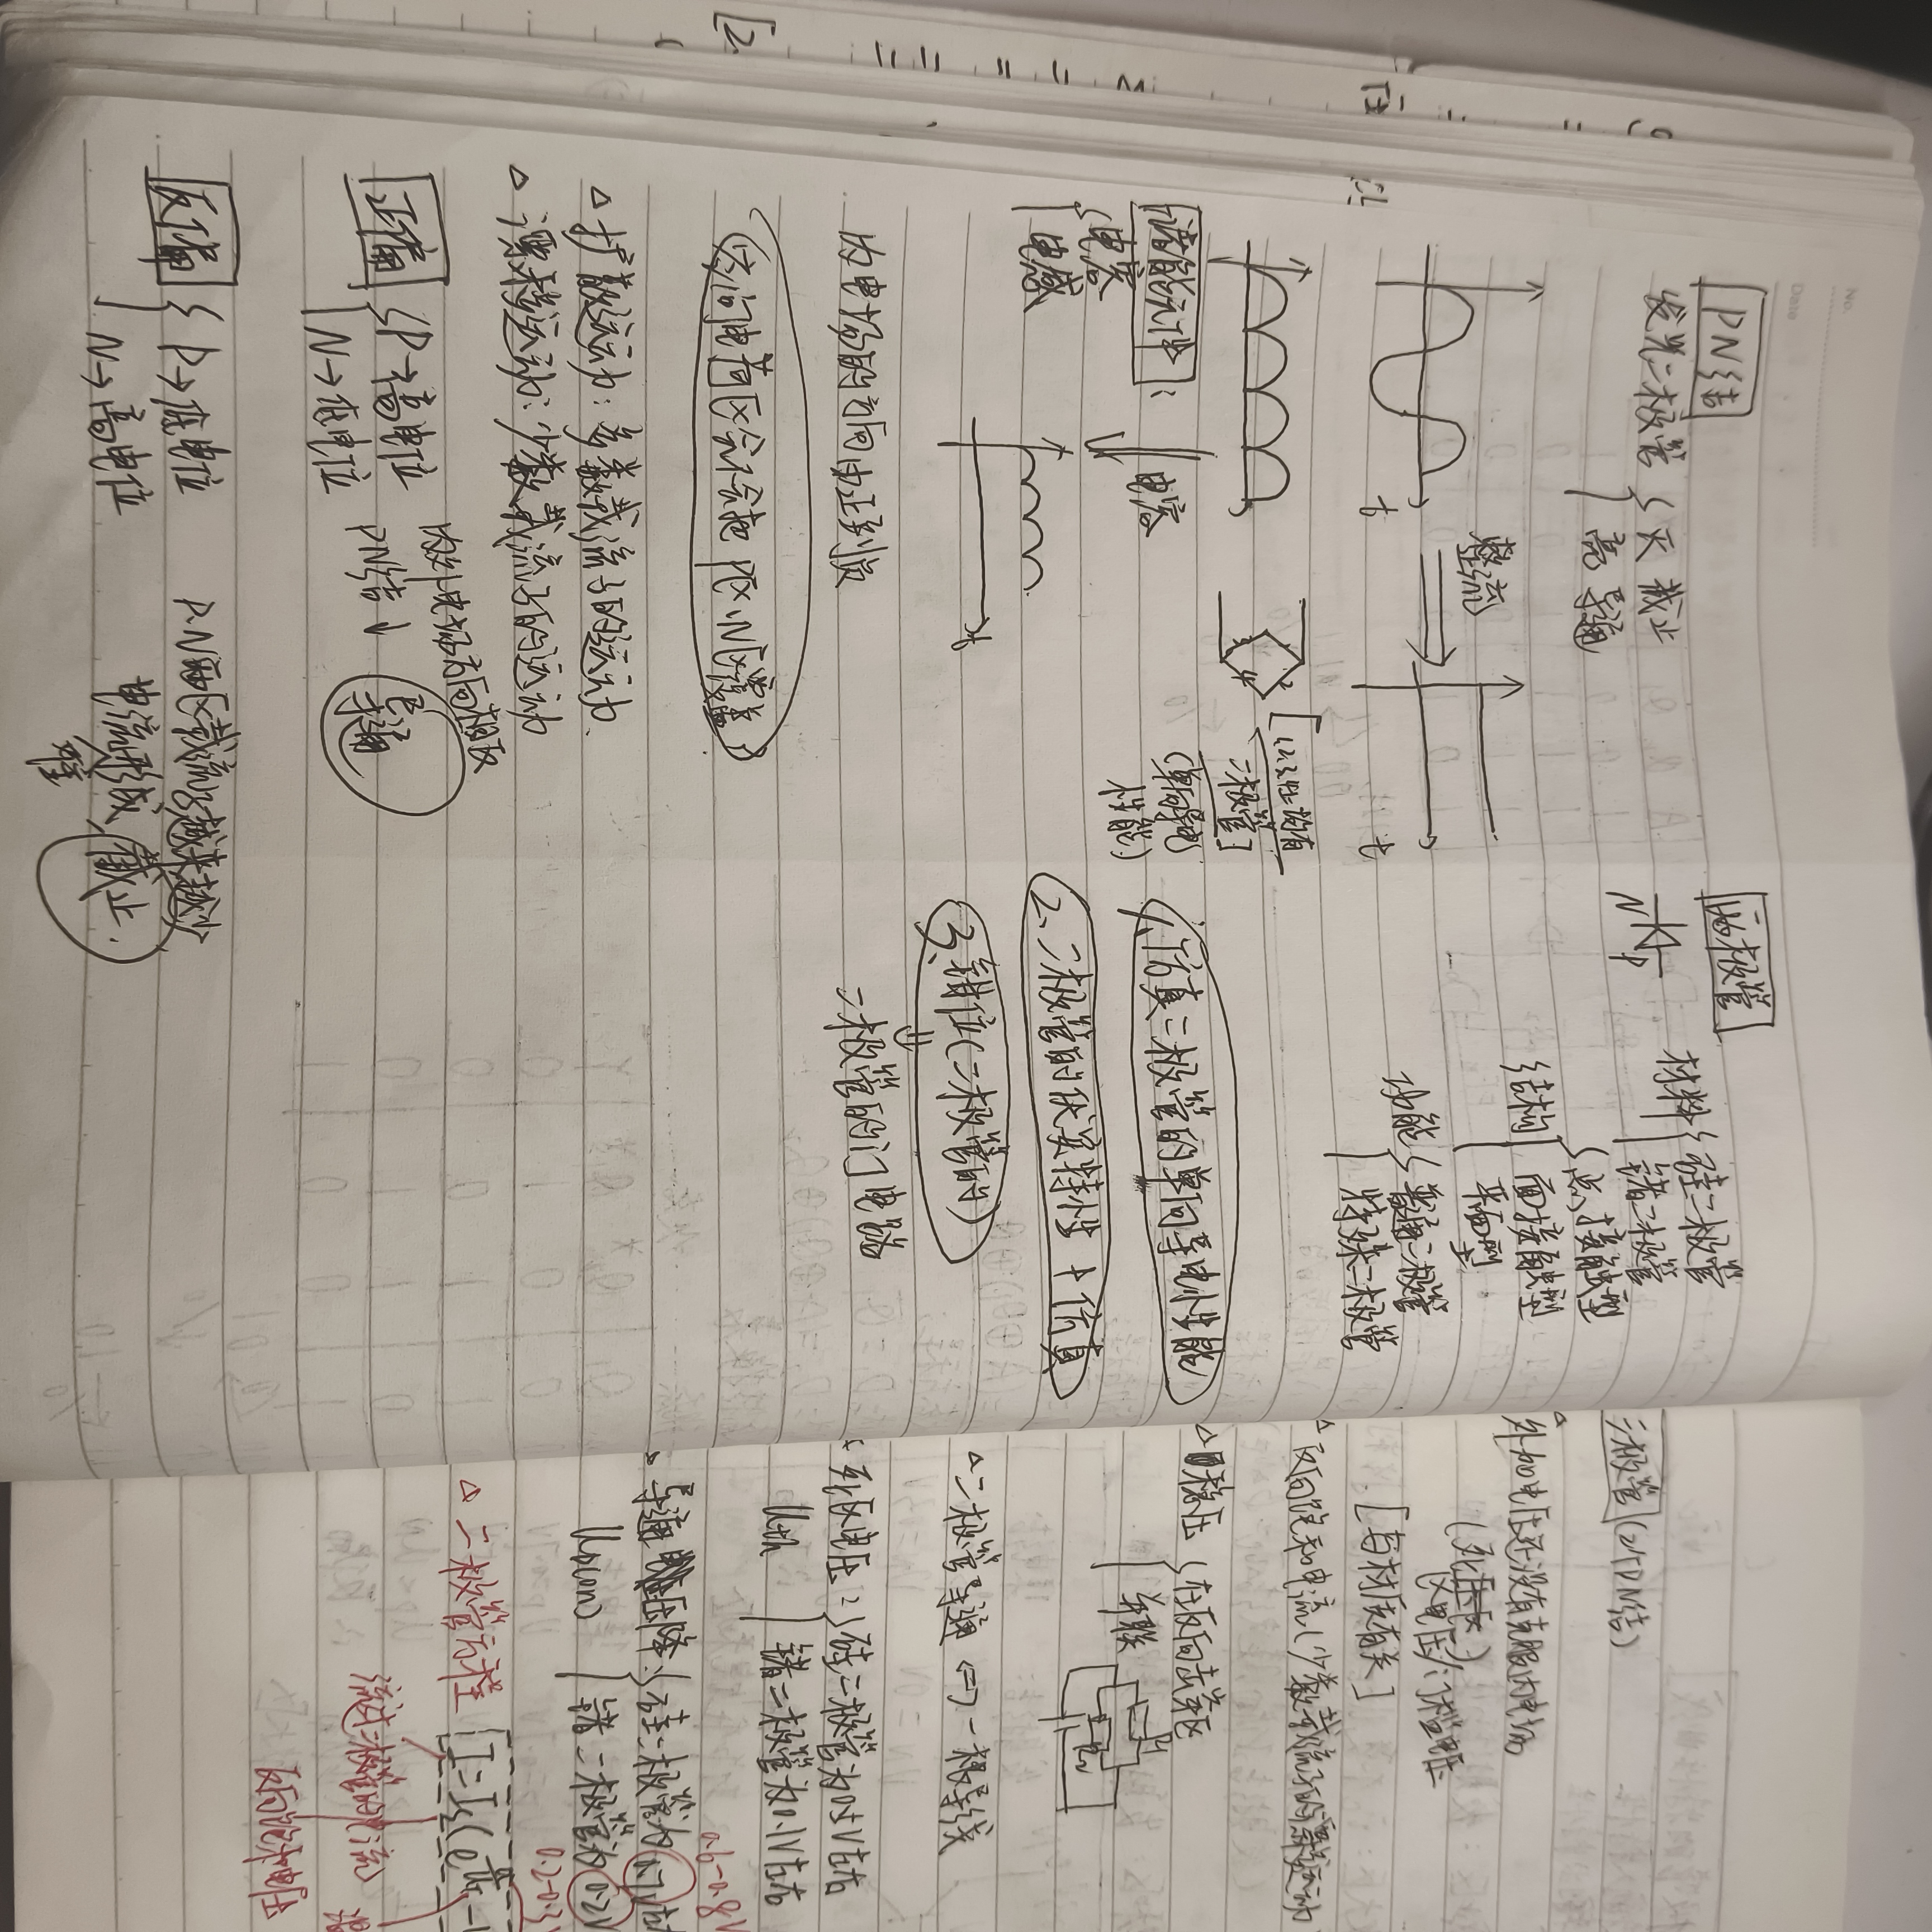 No.
Date
PN结
发光二极管 { 灭 截止
亮 导通
整流
t
t
1.2.3.4上均有
二极管]
(单向导电
性能)
2
3 4
储能元件:
电容
电感
电容
t
内电场的方向由正到负
空间电荷区会不会把P区、N区覆盖?
△ 扩散运动:多数载流子的运动.
△ 漂移运动:少数载流子的运动
正偏 { P→高电位
N→低电位
内外电场方向相反
PN结↓ 导通
反偏 { P→低电位
N→高电位
P.N两区载流子越来越少
电流形成 截止.
难
两极管
N P
材料 { 硅二极管
锗二极管
结构 { 点接触型
面接触型
平面型
功能 { 普通二极管
特殊二极管
1.仿真二极管的单向导电性能
2.二极管的伏安特性+仿真
3.钳位(二极管的)
⇓
二极管的门电路
三极管(2个PN结)
△
外加电压还没有克服内电场
(死区)
区电压/门槛电压
[与材质有关]
△ 反向饱和电流(少数载流子的漂移运动
△ 稳压 { 在反向击穿区
并联
R2
△ 二极管导通 <=> 一根导线
死区电压: { 硅二极管为0.5V左右
Uth 锗二极管为0.1V左右
0.6-0.8V
△ 导通电压降: { 硅二极管为0.7V左右
UD(on) 锗二极管为0.2V
0.2-0.3V
△ 二极管方程 I=Is(e
流过二极管的电流
反向饱和电压